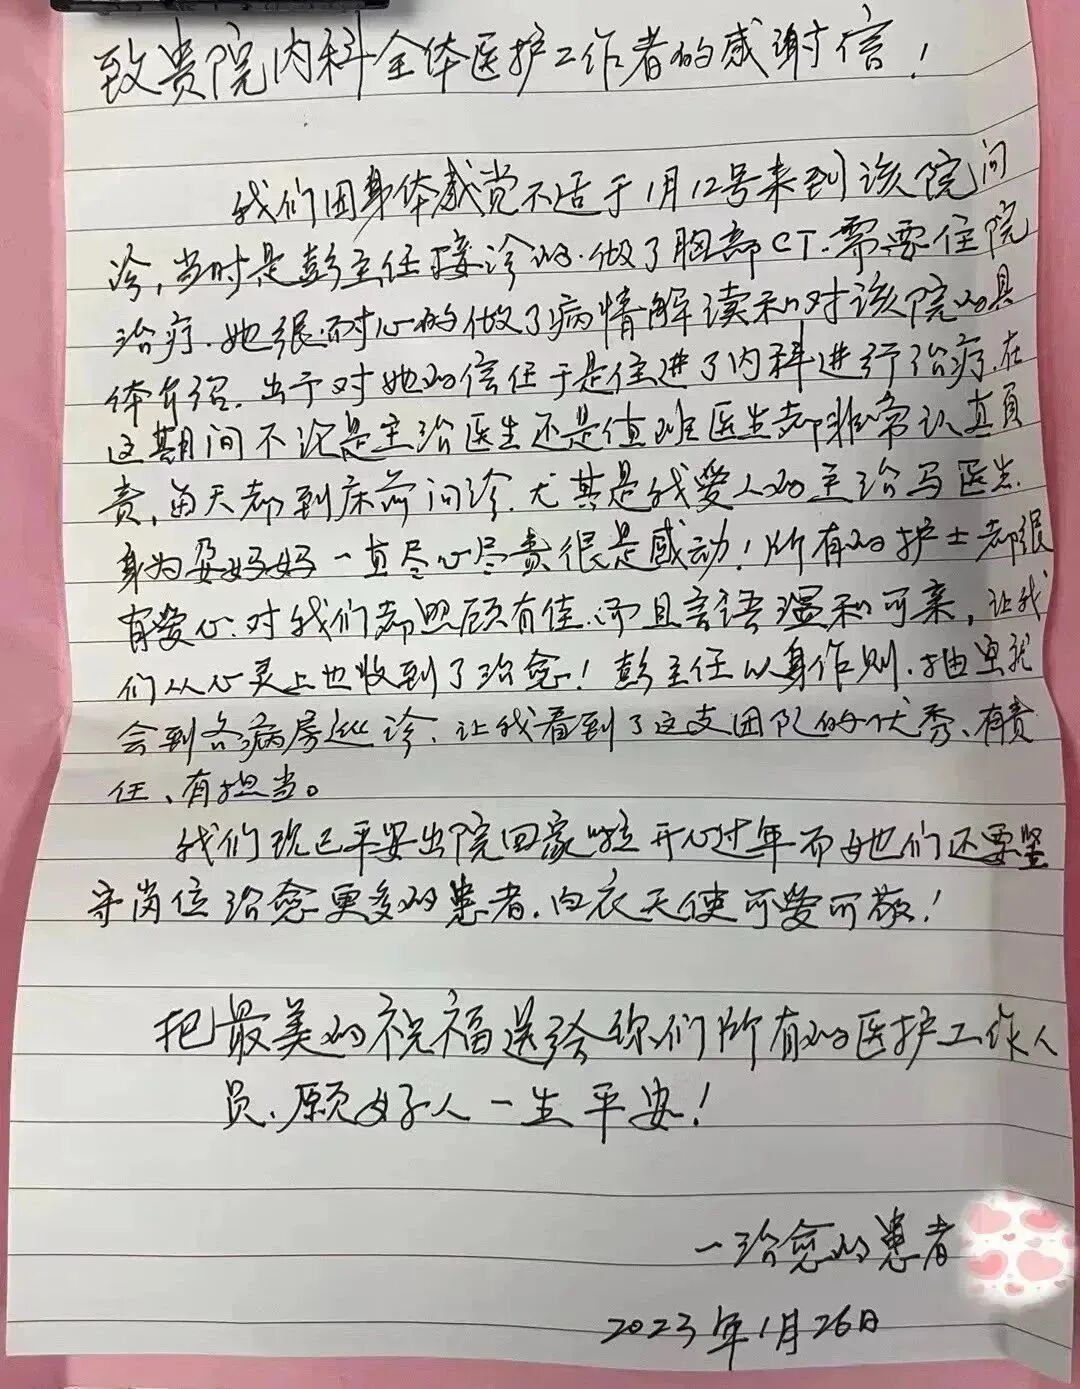 致贵院内科全体医护工作者的感谢信！
我们因身体感觉不适于1月12号来到该院问
诊，当时是彭主任接诊的.做了胸部CT.需要住院
治疗.她很耐心的做了病情解读和对该院的具
体介绍.出于对她的信任于是住进了内科进行治疗.在
这期间不论是主治医生还是值班医生都非常认真负
责,每天都到床前问诊.尤其是我爱人的主治马医生.
身为孕妈妈一直尽心尽责很是感动！所有的护士都很
有爱心.对我们都照顾有佳.而且言语温和可亲，让我
们从心灵上也收到了治愈！彭主任以身作则.抽空就
会到各病房巡诊.让我看到了这支团队的优秀、有责
任、有担当。
我们现已平安出院回家啦开心过年而她们还要坚
守岗位治愈更多的患者.白衣天使可爱可敬！
把最美的祝福送给你们所有的医护工作人
员.愿好人一生平安！
一治愈的患者
2023年1月26日